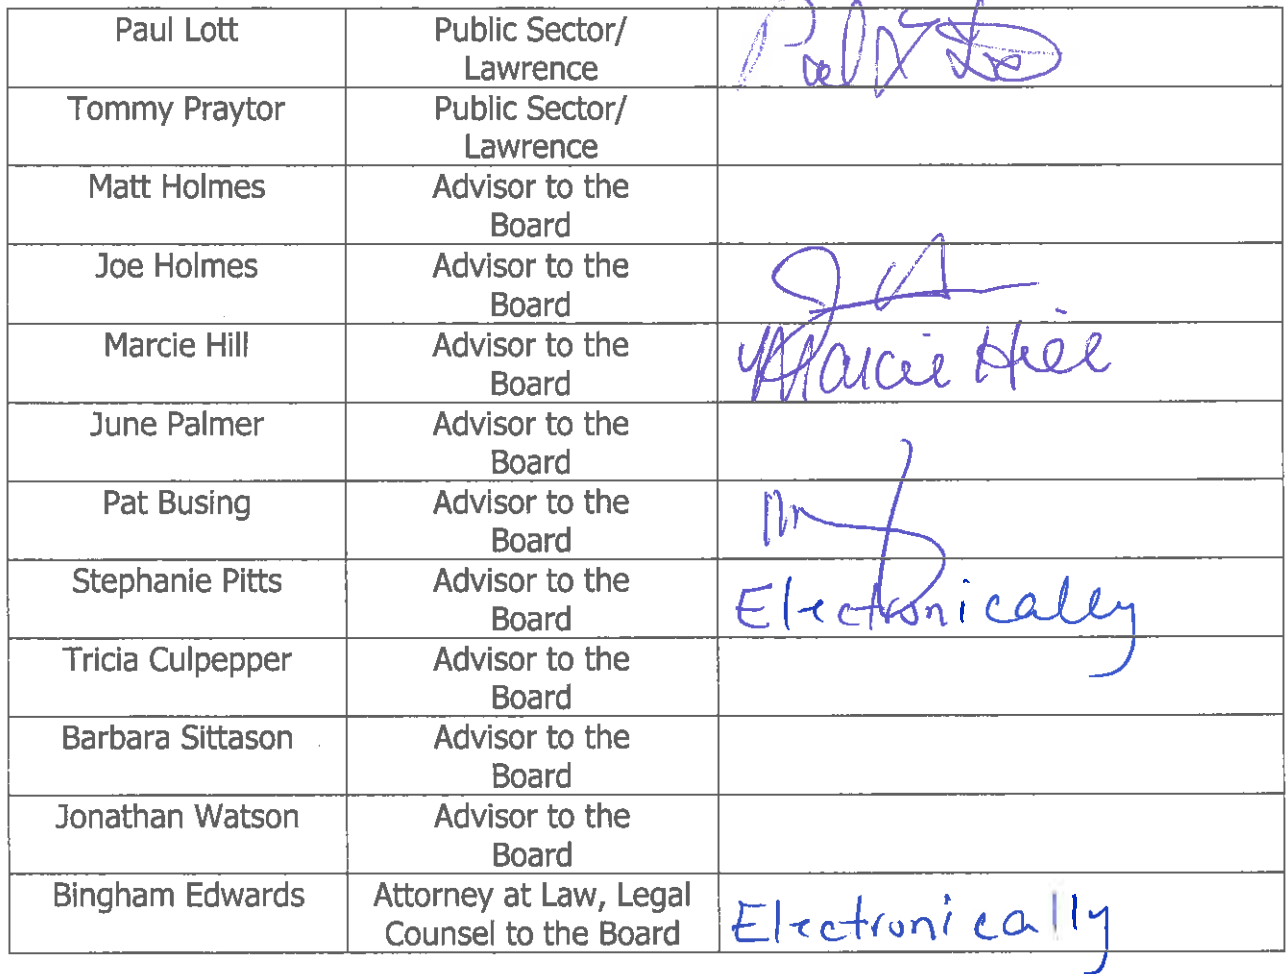 Paul Lott
Public Sector/
Lawrence
Tommy Praytor
Public Sector/
Lawrence
Matt Holmes
Advisor to the
Board
Joe Holmes
Advisor to the
Board
Marcie Hill
Advisor to the
Board
Marcie Hill
June Palmer
Advisor to the
Board
Pat Busing
Advisor to the
Board
Stephanie Pitts
Advisor to the
Board
Electronically
Tricia Culpepper
Advisor to the
Board
Barbara Sittason
Advisor to the
Board
Jonathan Watson
Advisor to the
Board
Bingham Edwards
Attorney at Law, Legal
Counsel to the Board
Electronically